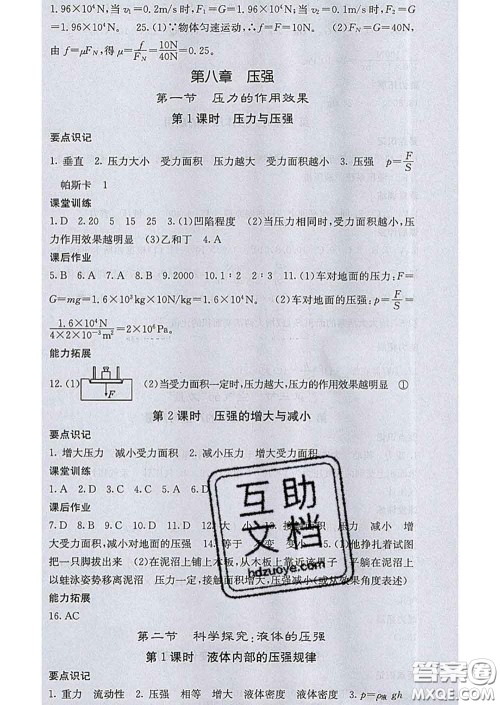 1.96×10⁴N,当 v₁=0.2m/s 时,F₁=G=1.96×10⁴N,当 v₂=0.1m/s 时,F₂=G
=1.96×10⁴N. 25.(1)∵物体匀速运动,∴f=F=10N (2)F_N=G=40N,
由 f=μF_N,得 μ=f/F_N=10N/40N=0.25。
第八章 压强
第一节 压力的作用效果
第1课时 压力与压强
要点识记
1. 垂直 2. 压力大小 受力面积 压力越大 受力面积越小 3. 压强 p=F/S
帕斯卡 1
课堂训练
1. D 2. 20 5 15 25 3. (1)凹陷程度 (2)当压力相同时,受力面积越小,压
力作用效果越明显 (3)乙和丁 4. A
课后作业
5. B 6. A 7. A 8. B 9. 2000 10. 1∶2 2∶3 11. (1)车对地面的压力:F=
G=mg=1.6×10³kg×10N/kg=1.6×10⁴N. (2)车对地面的压强:p=F/S=
1.6×10⁴N/4×2×10⁻³m²=2×10⁶Pa。
能力拓展
12. (1) F (2)当受力面积一定时,压力越大,压力的作用效果越明显 ①
第2课时 压强的增大与减小
要点识记
1. 增大压力 减小受力面积 2. 减小压力 增大受力面积
课堂训练
1. A 2. D 3. C 4. C 5. A 6. D
课后作业
7. D 8. B 9. C 10. D 11. D 12. 大 小 13. 接触面积 压力 减小 增
大受力面积,减小对地面的压强 14. 等于 不变 变小 15. (1)他挣扎着试图
把一只脚拔出来 (2)在泥沼上铺上木板,从木板上靠近该男子 平躺在泥沼上
以蛙泳姿势移离泥沼 压力一定,接触面积增大,压强减小(或从效果角度表述)
能力拓展
16. AC
第二节 科学探究:液体的压强
第1课时 液体内部的压强规律
要点识记
1. 重力 流动性 2. 压强 相等 增大 液体密度 液体密度 3. p=ρ液gh
互助
文档
hdzuoye.com
答案圈
MXQE.COM